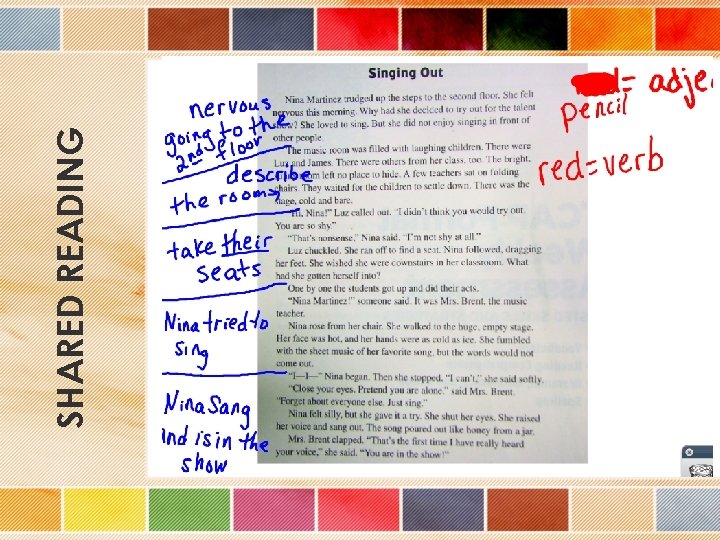 SHARED READING
nervous
going to the
2nd floor
describe
the rooms
take their
seats
Nina tried to
sing
Nina Sang
and is in the
show
Singing Out
Nina Martinez trudged up the steps to the second floor. She felt
nervous this morning. Why had she decided to try out for the talent
show? She loved to sing. But she did not enjoy singing in front of
other people.
The music room was filled with laughing children. There were
Luz and James. There were others from her class, too. The bright,
room left no place to hide. A few teachers sat on folding
chairs. They waited for the children to settle down. There was the
stage, cold and bare.
"Hi, Nina!" Luz called out. "I didn't think you would try out.
You are so shy."
"That's nonsense," Nina said. "I'm not shy at all."
Luz chuckled. She ran off to find a seat. Nina followed, dragging
her feet. She wished she were downstairs in her classroom. What
had she gotten herself into?
One by one the students got up and did their acts.
"Nina Martinez!" someone said. It was Mrs. Brent, the music
teacher.
Nina rose from her chair. She walked to the huge, empty stage.
Her face was hot, and her hands were as cold as ice. She fumbled
with the sheet music of her favorite song, but the words would not
come out.
"I—I—" Nina began. Then she stopped. "I can't," she said softly.
"Close your eyes. Pretend you are alone." said Mrs. Brent.
"Forget about everyone else. Just sing."
Nina felt silly, but she gave it a try. She shut her eyes. She raised
her voice and sang out. The song poured out like honey from a jar.
Mrs. Brent clapped. "That's the first time I have really heard
your voice," she said. "You are in the show!"
= adje
pencil
red=verb